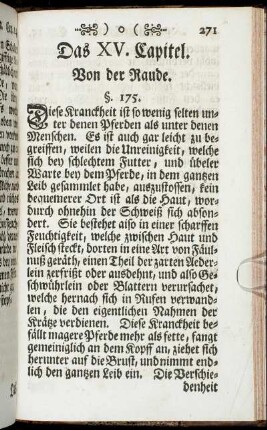 ) o ( 271
Das XV. Capitel.
Von der Raude.
§. 175.
Diese Kranckheit ist so wenig selten un-
ter denen Pferden als unter denen
Menschen. Es ist auch gar leicht zu be-
greiffen, weilen die Unreinigkeit, welche
sich bey schlechtem Futter, und übeler
Warte bey dem Pferde, in dem gantzen
Leib gesammlet habe, auszustossen, kein
bequemerer Ort ist als die Haut, wor-
durch ohnehin der Schweiß sich abson-
dert. Sie bestehet also in einer scharffen
Feuchtigkeit, welche zwischen Haut und
Fleisch steckt, dorten in eine Art von Fäul-
nuß geräth, einen Theil der zarten Aeder-
lein zerfrißt oder ausdehnt, und also Ge-
schwührlein oder Blattern verursachet,
welche hernach sich in Rufen verwand-
len, die den eigentlichen Nahmen der
Krätze verdienen. Diese Kranckheit be-
fällt magere Pferde mehr als fette, fangt
gemeiniglich an dem Kopff an, ziehet sich
herunter auf die Brust, und nimmt end-
lich den gantzen Leib ein. Die Verschie-
denheit